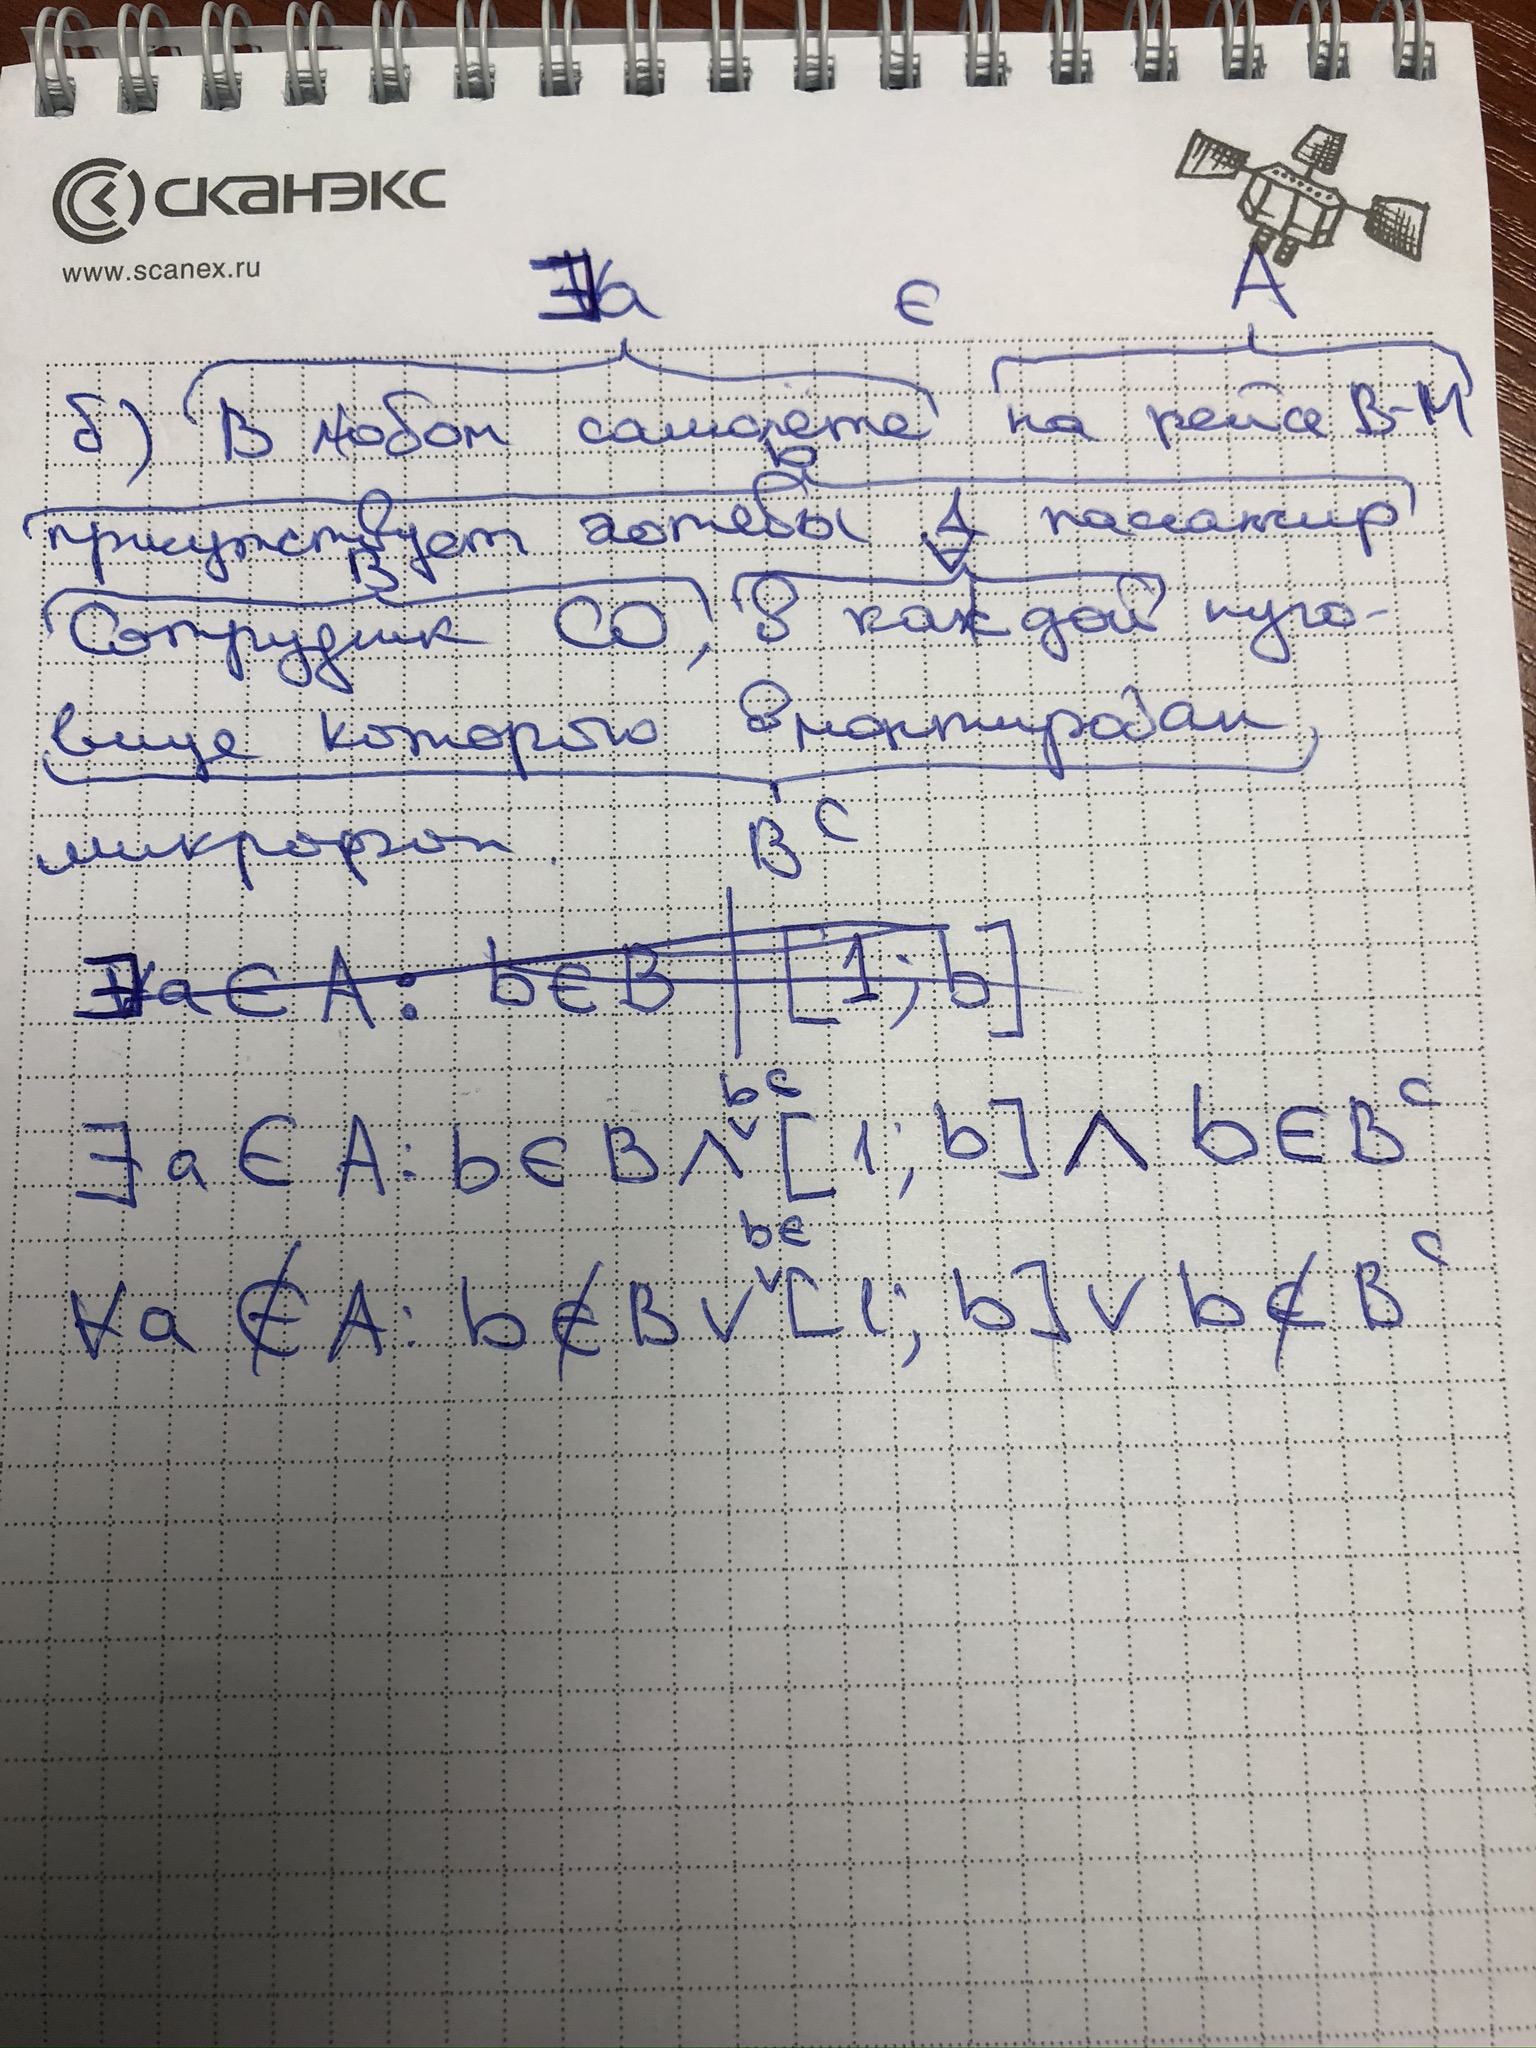 СКАНЭКС
www.scanex.ru
∃a ∈ A
б) В любом самолёте на рейсе В-М
b
присутствует хотебы 1 пассажир
B ∀
Сотрудник СО, в каждой пуго-
вице которого вмонтирован,
микрофон. B^C
∃a ∈ A: b ∈ B | [1; b]
b ∈
∃ a ∈ A: b ∈ B ∧ [1; b] ∧ b ∈ B^C
b ∈
∀a ∉ A: b ∉ B ∨ [1; b] ∨ b ∉ B^C